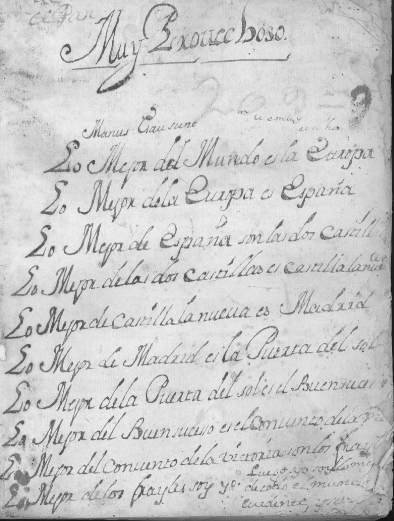 Muy Provechoso.
Lo Mejor del Mundo es la Europa
Lo Mejor dela Europa es España
Lo Mejor de España son las dos Castill
Lo Mejor de las dos Castillas es Castilla la nueva
Lo Mejor de Castilla la nueva es Madrid
Lo Mejor de Madrid es la Puerta del sol
Lo Mejor dela Puerta del sol es el Buensuceso
Lo Mejor del Buensuceso es el Convento dela
Lo Mejor del Convento de la Victoria son los frayles
Luego yo soy lo mejor
Lo Mejor de los frayles soy yo